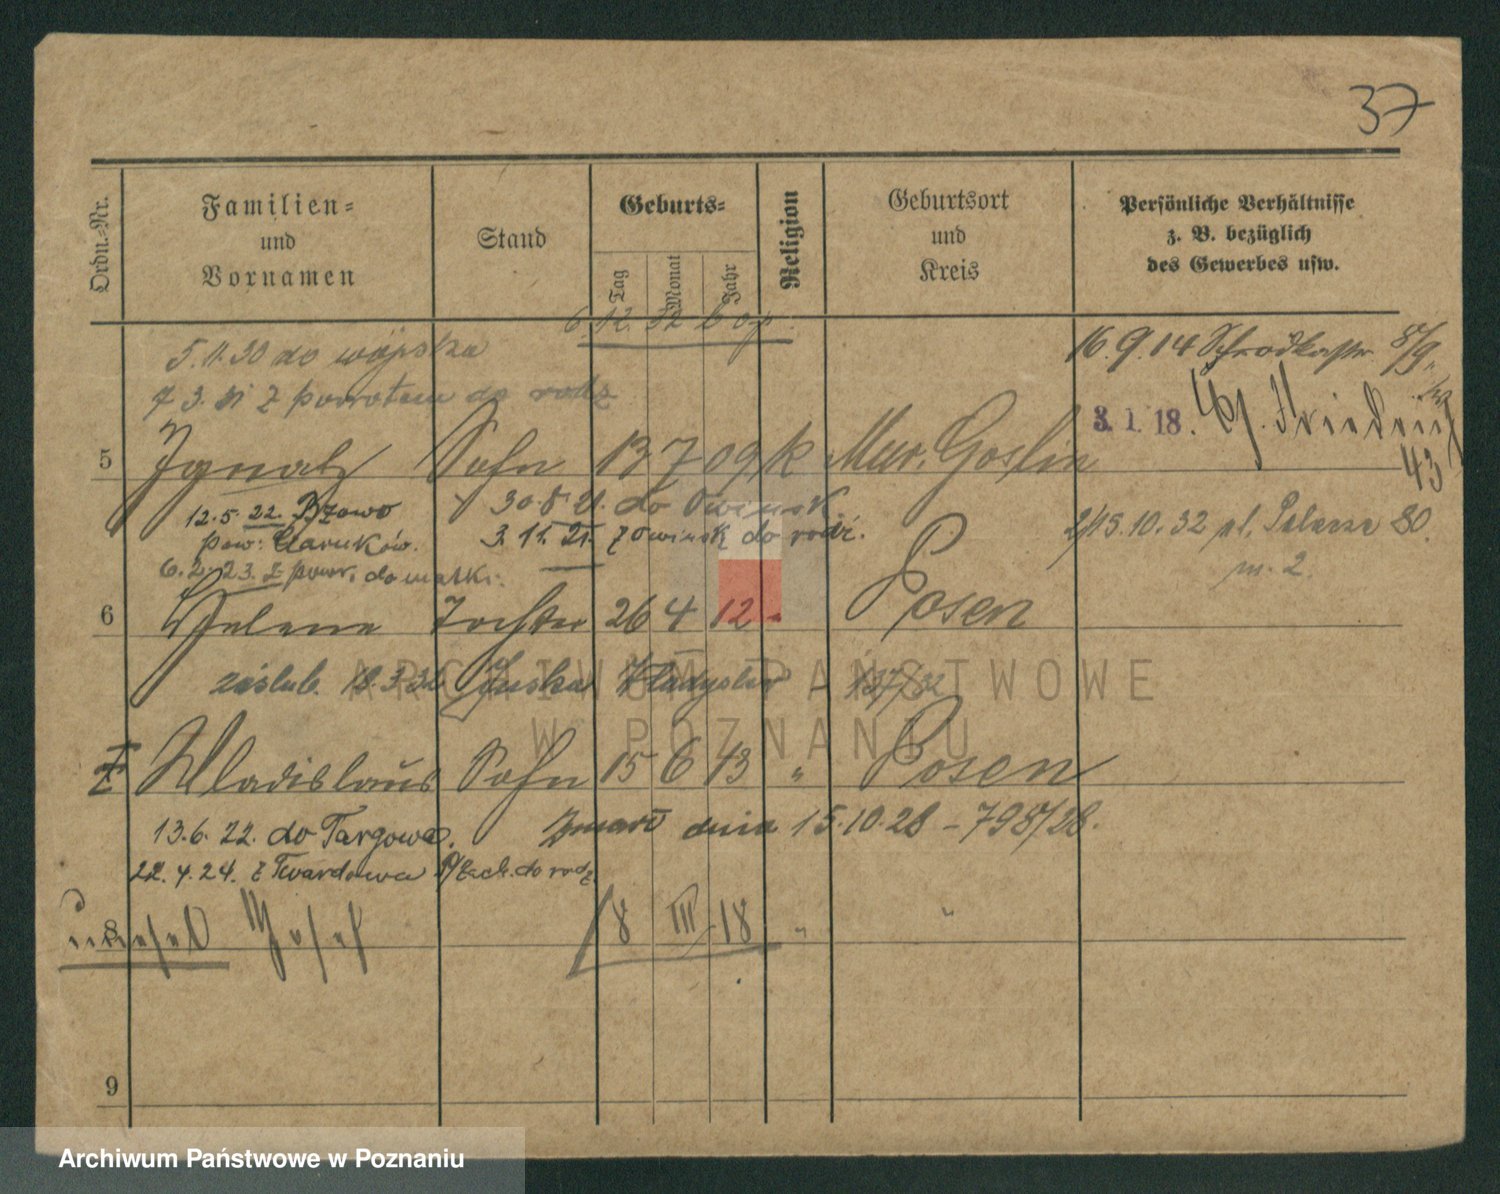 37
Ordn.-Nr.
Familien-
und
Vornamen
Stand
Geburts-
Tag
Monat
Jahr
Religion
Geburtsort
und
Kreis
Persönliche Verhältnisse
z. B. bezüglich
des Gewerbes usw.
5.11.30 do wojska
z powrotem do rodz
16.9.14 Schrodkastr. 8/9.
3.1.18. Friedrich
43
5 Ignatz Sohn 13 7 09 k Mur. Goslin
12.5.22. Brzowo 30.8.21. do Owinsk
pow: Czarnków. 3.11.21. z Owinsk do rodz.
15.10.32 pl. 80.
m. 2.
6.2.23. z powr. do matki.
6 Helene Tochter 26 4 12 Posen
zaślub. Władysław
7 Wladislaus Sohn 15 6 13 " Posen
13.6.22. do Targowa. Zmarł dnia 15.10.28 – 798/28.
22.4.24. z Twardowa do rodz.
8 Josef 8 III 18 " "
9
ARCHIWUM PAŃSTWOWE
W POZNANIU
Archiwum Państwowe w Poznaniu